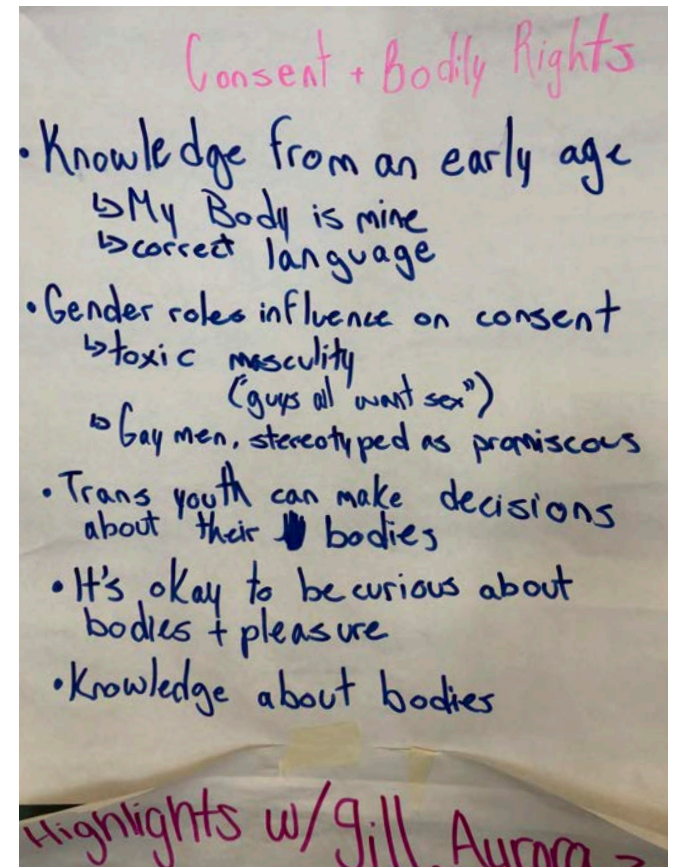 Consent + Bodily Rights
• Knowledge from an early age
↳ My Body is mine
↳ correct language
• Gender roles influence on consent
↳ toxic masculity
("guys all want sex")
↳ Gay men, stereotyped as promiscous
• Trans youth can make decisions
about their bodies
• It's okay to be curious about
bodies + pleasure
• Knowledge about bodies
Highlights w/ Gill, Aurora